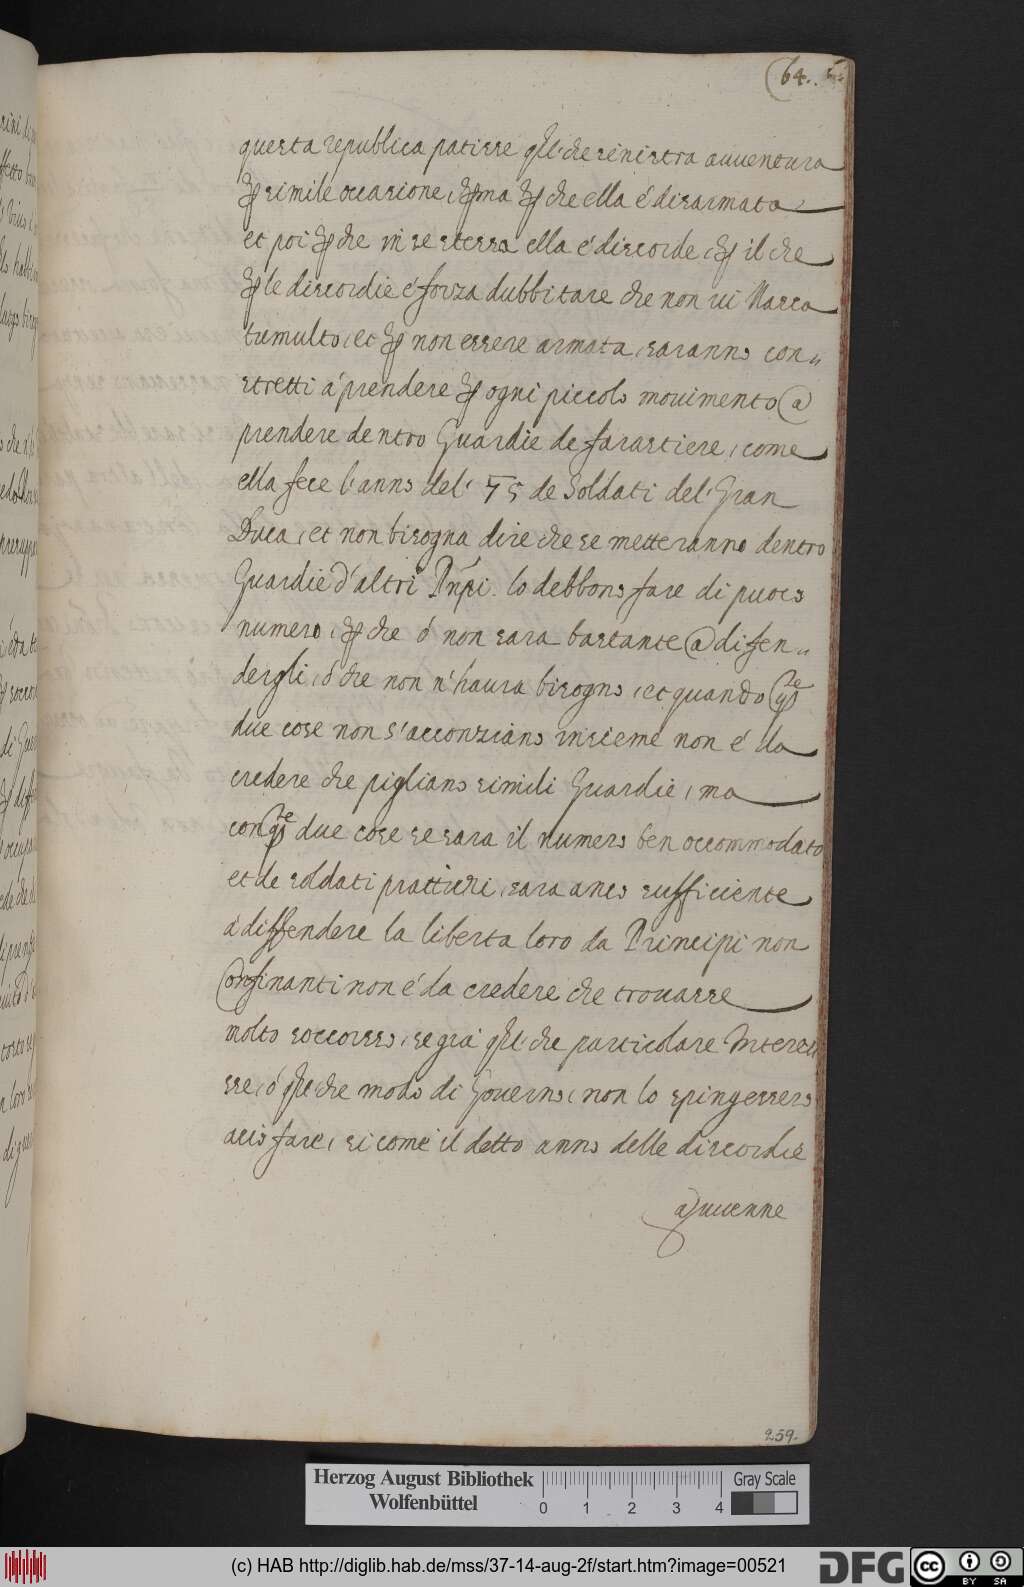 64.
questa republica patisse qlche sinistra auuentura
ꝑ simile occasione, ꝑma ꝑche ella é disarmata
et poi ꝑche in se stessa ella é discorde, ꝑ il che
ꝑ le discordie é forza dubbitare che non ui Nasca
tumulto, et ꝑ non essere armata, saranno con„
stretti á prendere ꝑ ogni piccolo mouimento a
prendere dentro Guardie de farastiere, come
ella fece l'anno del' 75 de Soldati del' Gran
Duca, et non bisogna dire che se metteranno dentro
Guardie d'altri Pnpi. lo debbono fare di puoco
numero, ꝑche ó non sara bastante a difen„
dergli, ó che non n'haura bisogno, et quando qste
due cose non s'acconziano insieme non é da
credere che pigliano simili Guardie, ma
con qste due cose se sara il numero ben accommodato
et de soldati prattichi, sara anco sufficiente
á diffendere la liberta loro da Principi non
Confinanti non é da credere che trouasse
molto soccorso, se gia qlche particolare Interes„
sse, ó qlche modo di Gouerno, non lo spingessero
acio fare, si come il detto anno delle discordie
auuenne
259.
Herzog August Bibliothek
Wolfenbüttel
0 1 2 3 4
Gray Scale
(c) HAB http://diglib.hab.de/mss/37-14-aug-2f/start.htm?image=00521
DFG
cc BY SA